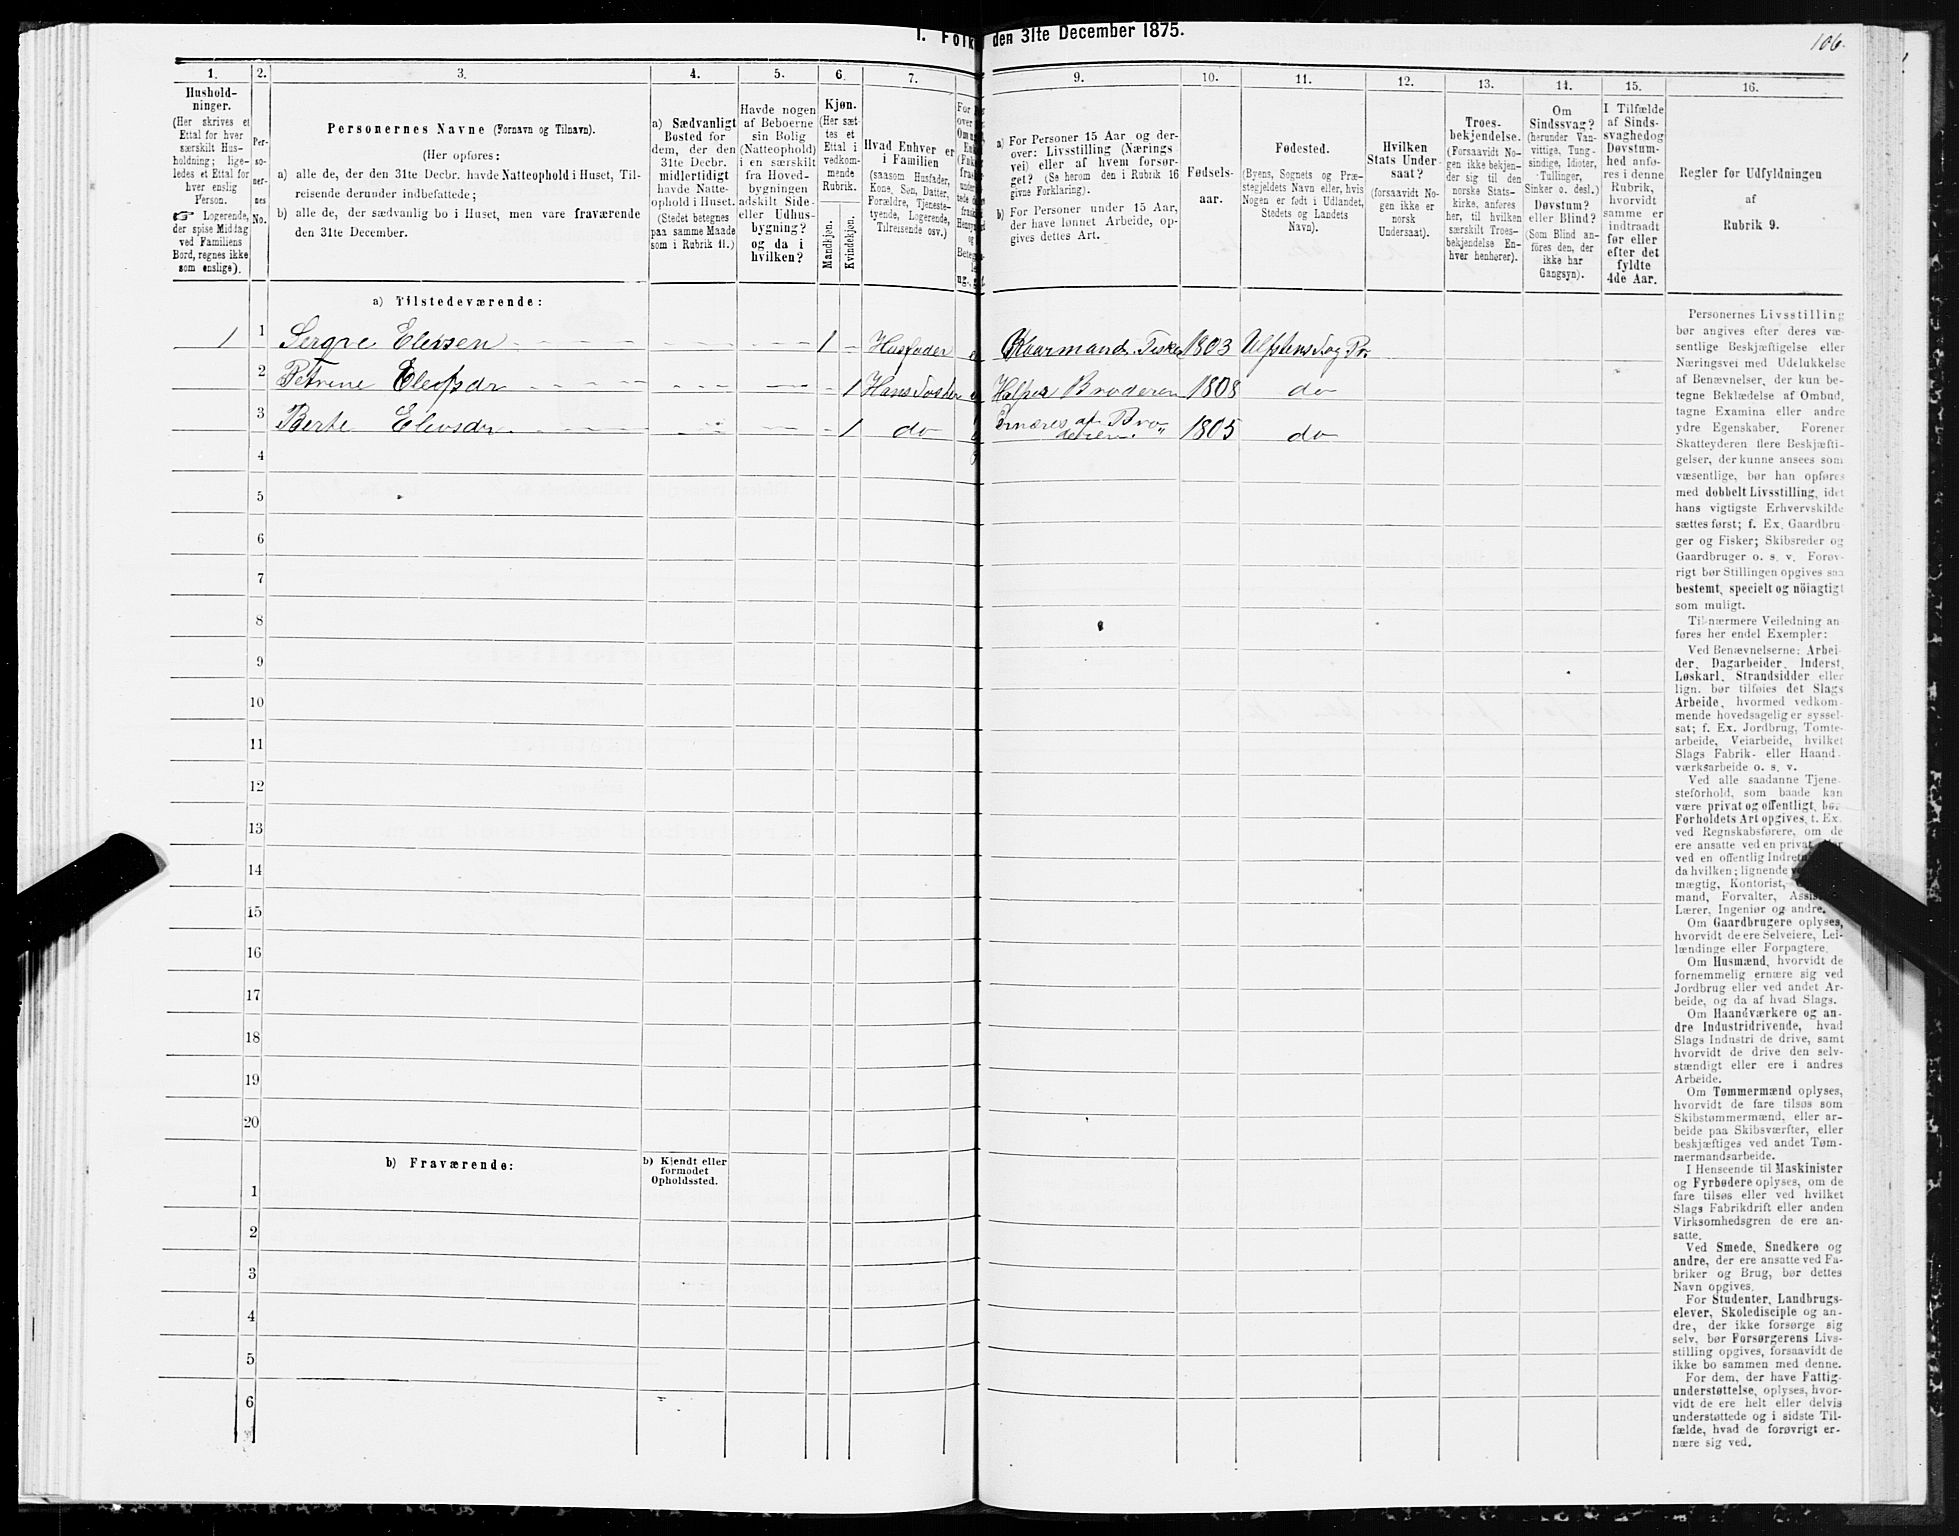 1. Folk den 31te December 1875.
106.
1.
Hushold-
ninger.
(Her skrives et
Ettal for hver
særskilt Hus-
holdning; lige-
ledes et Ettal for
hver enslig
Person.
☞ Logerende,
der spise Middag
ved Familiens
Bord, regnes ikke
som enslige).
2.
Per-
so-
ner-
nes
No.
3.
Personernes Navne (Fornavn og Tilnavn).
(Her opføres:
a) alle de, der den 31te Decbr. havde Natteophold i Huset, Til-
reisende derunder indbefattede;
b) alle de, der sædvanlig bo i Huset, men vare fraværende
den 31te December.
4.
a) Sædvanligt
Bosted for
dem, der den
31te Decbr.
midlertidigt
havde Natte-
ophold i Huset.
(Stedet betegnes
paa samme Maade
som i Rubrik 11.)
5.
Havde nogen
af Beboerne
sin Bolig
(Natteophold)
i en særskilt
fra Hoved-
bygningen
adskilt Side-
eller Udhus-
bygning?
og da i
hvilken?
6.
Kjøn.
(Her sæt-
tes et
Ettal i
vedkom-
mende
Rubrik.
Mandkjøn.
Kvindekjøn.
7.
Hvad Enhver er
i Familien
(saasom Husfader,
Kone, Søn, Datter,
Forældre, Tjeneste-
tyende, Logerende,
Tilreisende osv.)
9.
a) For Personer 15 Aar og der-
over: Livsstilling (Nærings
vei) eller af hvem forsør-
get? (Se herom den i Rubrik 16
givne Forklaring).
b) For Personer under 15 Aar,
der have lønnet Arbeide, op-
gives dettes Art.
10.
Fødsels-
aar.
11.
Fødested.
(Byens, Sognets og Præ-
stegjeldets Navn eller, hvis
Nogen er født i Udlandet,
Stedets og Landets
Navn).
12.
Hvilken
Stats Under-
saat?
(forsaavidt No-
gen ikke er
norsk
Undersaat).
13.
Troes-
bekjendelse.
(Forsaavidt No-
gen ikke bekjen-
der sig til den
norske Stats-
kirke, anføres
her, til hvilken
særskilt Troes-
bekjendelse En-
hver henhører).
14.
Om
Sindssvag?
(herunder Van-
vittige, Tung-
sindige, Idioter,
Tullinger,
Sinker o. desl.)
Døvstum?
eller Blind?
(Som Blind an-
føres den, der
ikke har
Gangsyn).
15.
I Tilfælde
af Sinds-
svaghed og
Døvstum-
hed anfø-
res i denne
Rubrik,
hvorvidt
samme er
indtraadt
før eller
efter det
fyldte
4de Aar.
16.
Regler for Udfyldningen
af
Rubrik 9.
a) Tilstedeværende:
1 1 Serqve Elevsen 1 Husfader Kaarmand. Fisker 1803 Ulfstens Sog
2 Petrine Elevsdr 1 Hans Søster Helper Broderen 1808 do
3 Berte Elevsdr 1 do Ernæres af Bro-
deren 1805 do
4
5
6
7
8
9
10
11
12
13
14
15
16
17
18
19
20
b) Fraværende:
b) Kjendt eller
formodet
Opholdssted.
1
2
3
4
5
6
Personernes Livsstilling
bør angives efter deres væ-
sentlige Beskjæftigelse eller
Næringsvei med Udelukkelse
af Benævnelser, der kun be-
tegne Beklædelse af Ombud,
tagne Examina eller andre
ydre Egenskaber. Forener
Skatteyderen flere Beskjæfti-
gelser, der kunne ansees som
væsentlige, bør han opføres
med dobbelt Livsstilling, idet
hans vigtigste Erhvervskilde
sættes først; f. Ex. Gaardbru-
ger og Fisker; Skibsreder og
Gaardbruger o. s. v. Forøv-
rigt bør Stillingen opgives saa
bestemt, specielt og nöiagtigt
som muligt.
Til nærmere Veiledning an-
føres her endel Exempler:
Ved Benævnelserne: Arbei-
der, Dagarbeider, Inderst,
Løskarl, Strandsidder eller
lign. bør tilføies det Slags
Arbeide, hvormed vedkom-
mende hovedsagelig er syssel-
sat; f. Ex. Jordbrug, Tomte-
arbeide, Veiarbeide, hvilket
Slags Fabrik- eller Haand-
værksarbeide o. s. v.
Ved alle saadanne Tjene-
steforhold, som baade kan
være privat og offentligt, bør
Forholdets Art opgives, t. Ex.
ved Regnskabsførere, om de
ere ansatte ved en privat
ved en offentlig
da hvilken; lignende
mægtig, Kontorist,
mand, Forvalter,
Lærer, Ingeniør og andre.
Om Gaardbrugere oplyses,
hvorvidt de ere Selveiere, Lei-
lændinge eller Forpagtere.
Om Husmænd, hvorvidt de
fornemmelig ernære sig ved
Jordbrug eller ved andet Ar-
beide, og da af hvad Slags.
Om Haandværkere og an-
dre Industridrivende, hvad
Slags Industri de drive, samt
hvorvidt de drive den selv-
stændigt eller ere i andres
Arbeide.
Om Tømmermænd oplyses,
hvorvidt de fare tilsøs som
Skibstømmermænd, eller ar-
beide paa Skibsværfter, eller
beskjæftiges ved andet Tøm-
mermandsarbeide.
I Henseende til Maskinister
og Fyrbødere oplyses, om de
fare tilsøs eller ved hvilket
Slags Fabrikdrift eller anden
Virksomhedsgren de ere an-
satte.
Ved Smede, Snedkere og
andre, der ere ansatte ved Fa-
briker og Brug, bør dettes
Navn opgives.
For Studenter, Landbrugs-
elever, Skoledisciple og an-
dre, der ikke forsørge sig
selv, bør Forsørgerens Livs-
stilling opgives, forsaavidt de
ikke bo sammen med denne.
For dem, der have Fattig-
understøttelse, oplyses, hvor-
vidt de ere helt eller delvis
understøttede og i sidste Til-
fælde, hvad de forøvrigt er-
nære sig ved.